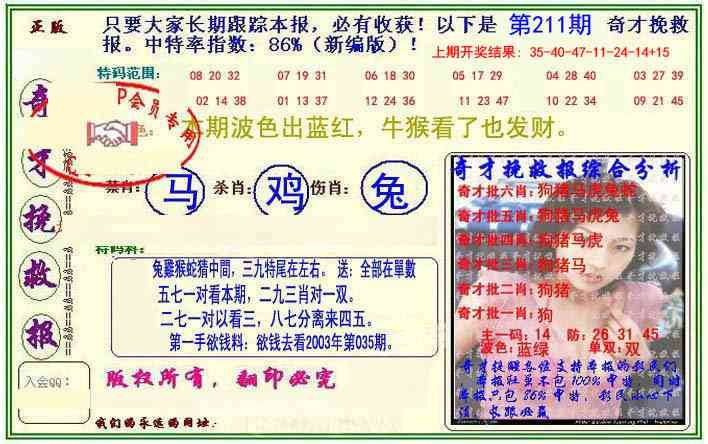 正版
只要大家长期跟踪本报，必有收获！以下是 第211期 奇才挽救
报。中特率指数：86%（新编版）！
上期开奖结果：35-40-47-11-24-14+15
特码范围：
08 20 32 07 19 31 06 18 30 05 17 29 04 28 40 03 27 39
02 14 38 01 13 37 12 24 36 11 23 47 10 22 34 09 21 45
VIP会员专用
色：本期波色出蓝红，牛猴看了也发财。
禁肖：马 杀肖：鸡 伤肖：兔
奇才挽救报
特码料：
兔雞猴蛇猜中間，三九特尾在左右。 送：全部在單數
五七一对看本期，二九三肖对一双。
二七一对以看三，八七分离来四五。
第一手欲钱料：欲钱去看2003年第035期。
奇才挽救报综合分析
奇才批六肖：狗猪马虎兔蛇
奇才批五肖：狗猪马虎兔
奇才批四肖：狗猪马虎
奇才批三肖：狗猪马
奇才批二肖：狗猪
奇才批一肖：狗
主一码：14 防：26 31 45
波色：蓝绿 单双：双
奇才提醒各位支持本报的彩民们
本报归虽不包100%中特，同时
本报只包86%中特，彩民小心下
注，长跟必赢
入会QQ：
版权所有，翻印必究
我们的永远的网址：